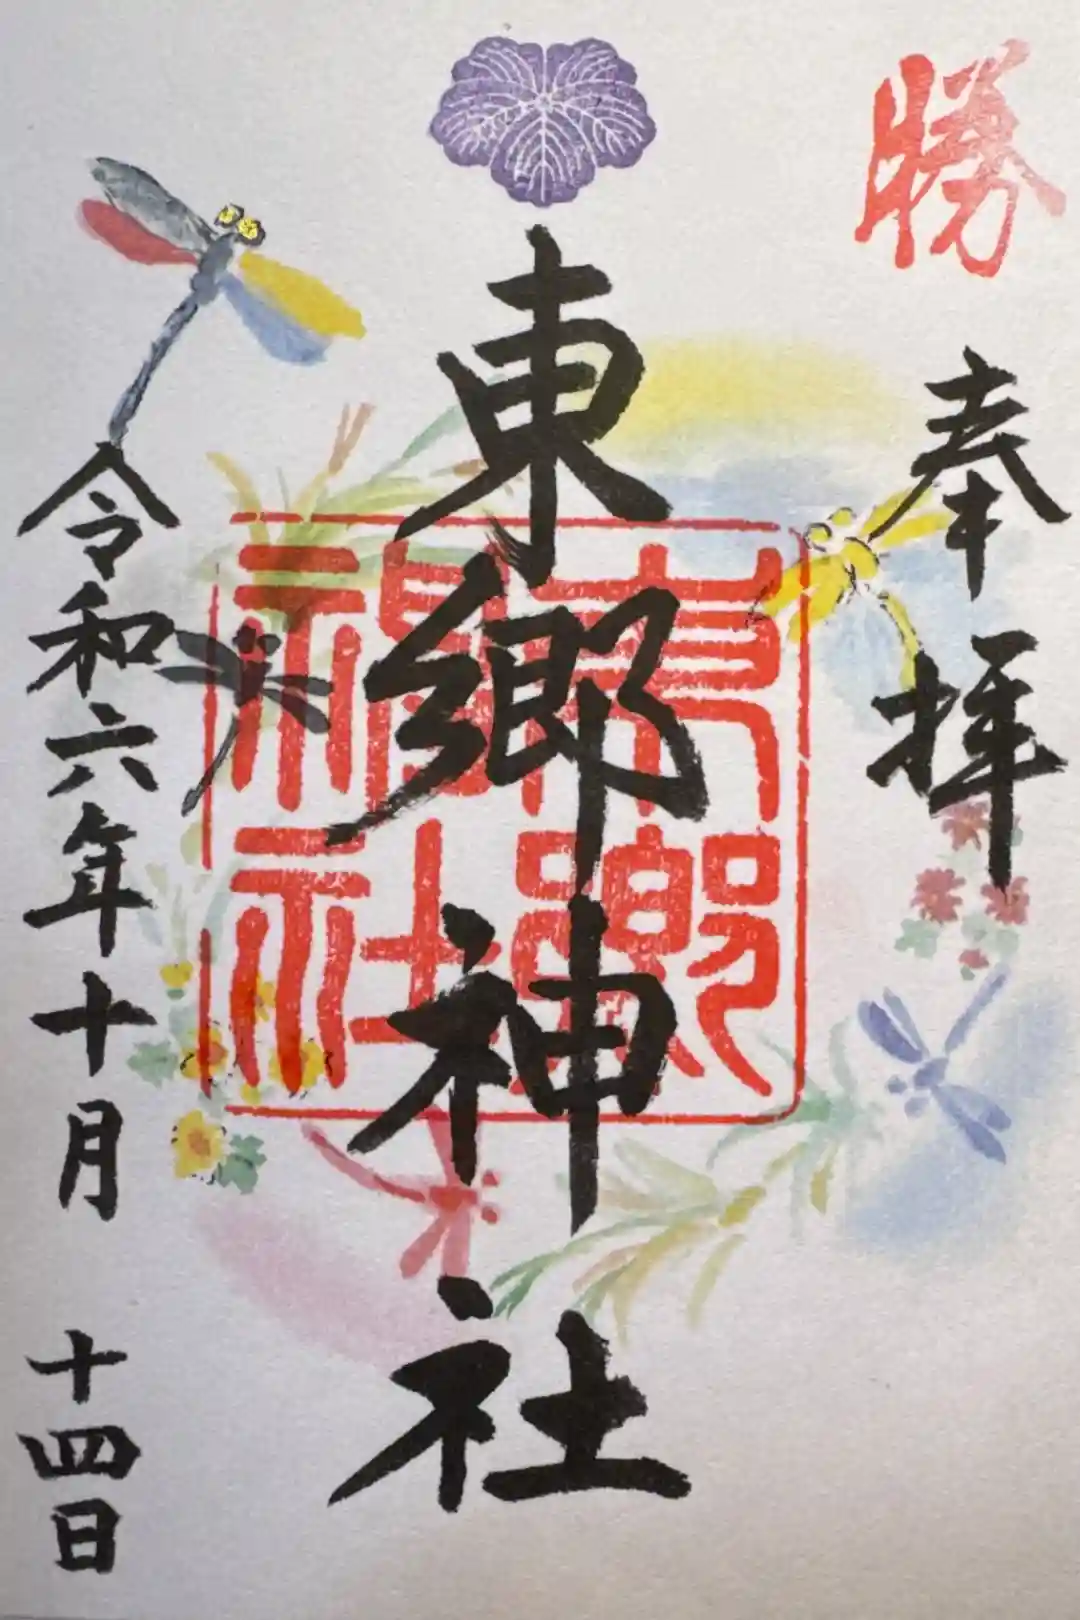 勝
奉拝
東郷神社
東郷神社
令和六年十月十四日